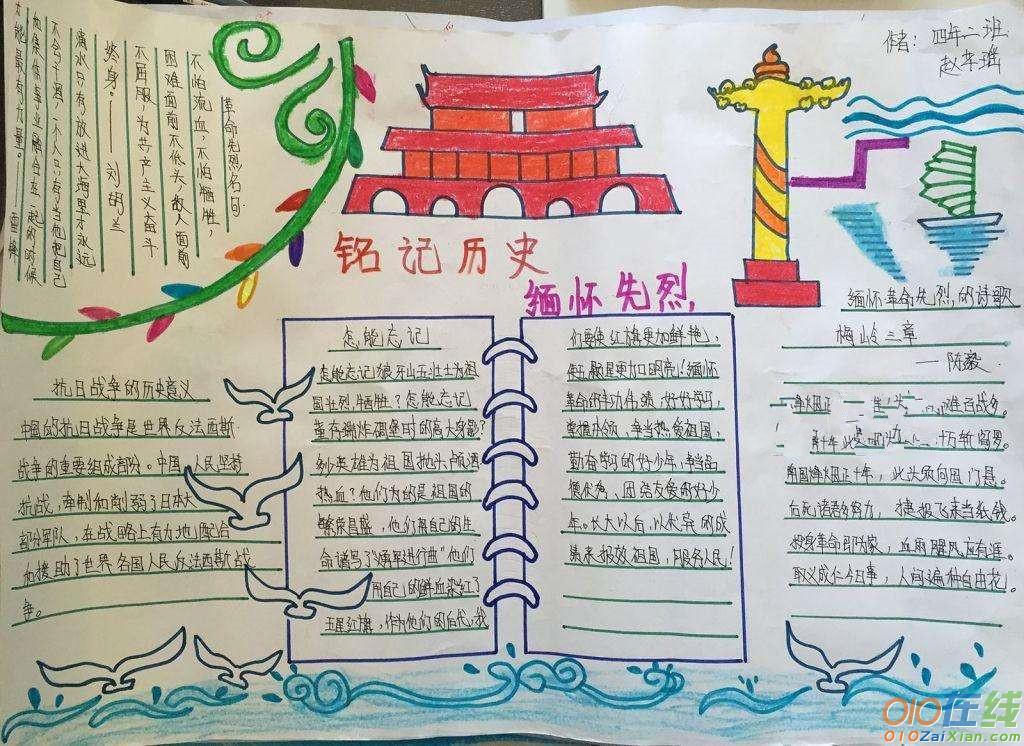 作者：四年二班
赵幸瑶
革命先烈名句
不怕流血，不怕牺牲，
困难面前不低头，敌人面前
不屈服，为共产主义奋斗
终身。——刘胡兰
滴水只有放进大海里才永远
不会干涸，一个人只有当他把自己
和集体事业融合在一起的时候
才能最有力量。——雷锋
铭记历史
缅怀先烈
抗日战争的历史意义
中国的抗日战争是世界反法西斯
战争的重要组成部分。中国人民坚持
抗战，牵制和削弱了日本大
部分军队，在战略上有力地配合
和援助了世界各国人民反法西斯战
争。
怎能忘记
怎能忘记狼牙山五壮士为祖
国壮烈牺牲？怎能忘记
董存瑞炸碉堡时的高大身影？
多少英雄为祖国抛头颅洒
热血？他们为的是祖国的
繁荣昌盛，他们用自己的生
命谱写了"义勇军进行曲"他们
用自己的鲜血染红了
五星红旗，作为他们的后代，我
们要使红旗更加鲜艳，
使五颗星更加明亮！缅怀
革命的丰功伟绩，好好学习，
掌握本领，争当热爱祖国，
勤奋学习的好少年，争当品
德优秀、团结友爱的好少
年。长大以后，以优异的成
绩来报效祖国，服务人民！
缅怀革命先烈的诗歌
梅岭三章
——陈毅
南国烽火正十年，此头须向国门悬。
后死诸君多努力，捷报飞来当纸钱。
投身革命即为家，血雨腥风应有涯。
取义成仁今日事，人间遍种自由花。
010在线
010ZaiXian.com